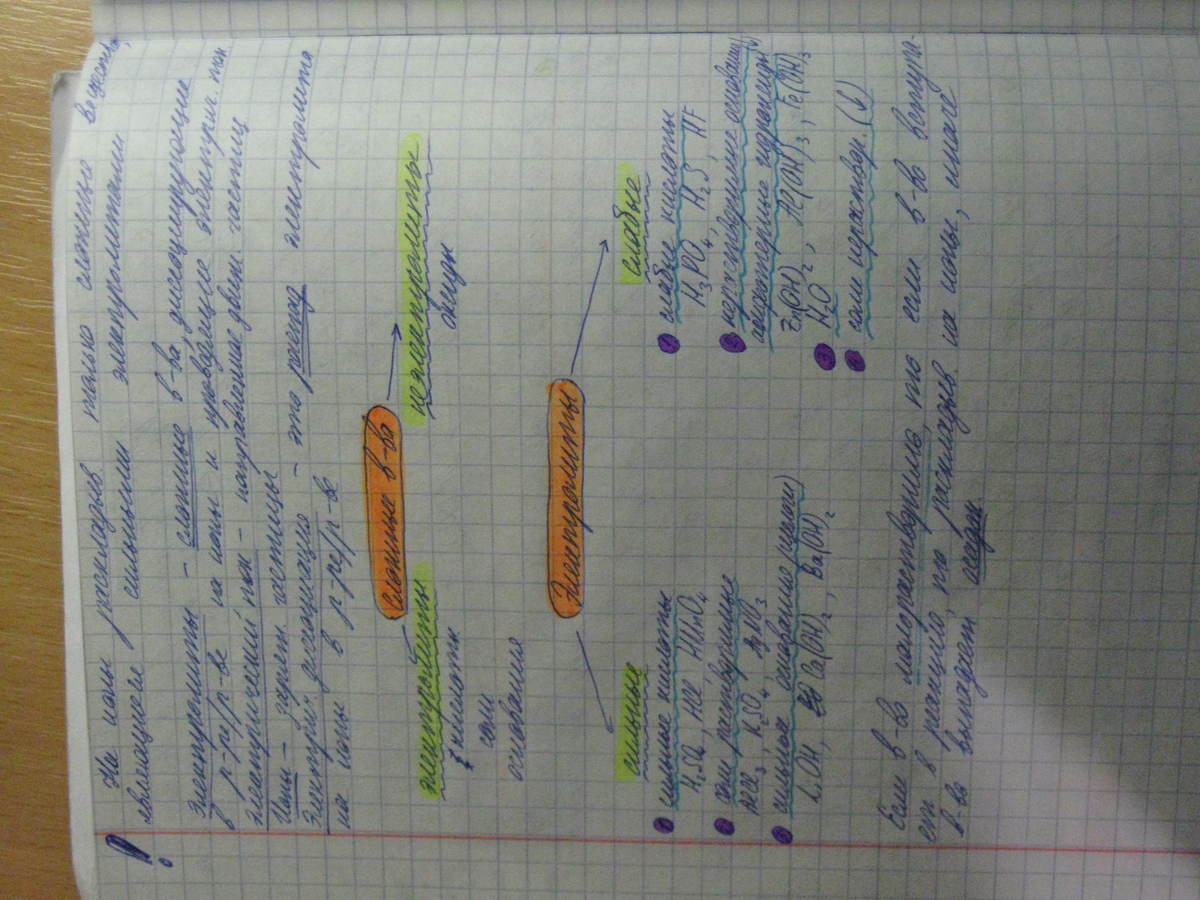 ! На ионы расклад-ся только сложные вещества,
являющиеся сильными электролитами
Электролиты – сложные в-ва, диссоциирующие
в р-ре/р-ве на ионы и проводящие электрич. ток
Электрический ток – направленное движ. частиц
Ионы – заряж. частицы
Электрич. диссоциация – это распад электролита
на ионы в р-ре/р-ве
Сложные в-ва
электролиты
неэлектролиты
кислоты
соли
основания
оксиды
Электролиты
сильные
слабые
1 сильные кислоты
H2SO4, HCl, HMnO4
2 соли растворимые
AlCl3, K2SO4, AgNO3
3 сильные основания (щёлочи)
LiOH, Ca(OH)2, Ba(OH)2
1 слабые кислоты
H3PO4, H2S, HF
2 нерастворимые основания/
амфотерные гидроксиды (↓)
Zn(OH)2, Al(OH)3, Fe(OH)3
3 H2O
4 соли нераствор. (↓)
Если в-во малорастворимо, то если в-во вступа-
ет в реакцию, то расклад-ся на ионы, иначе
в-во выпадает осадком.